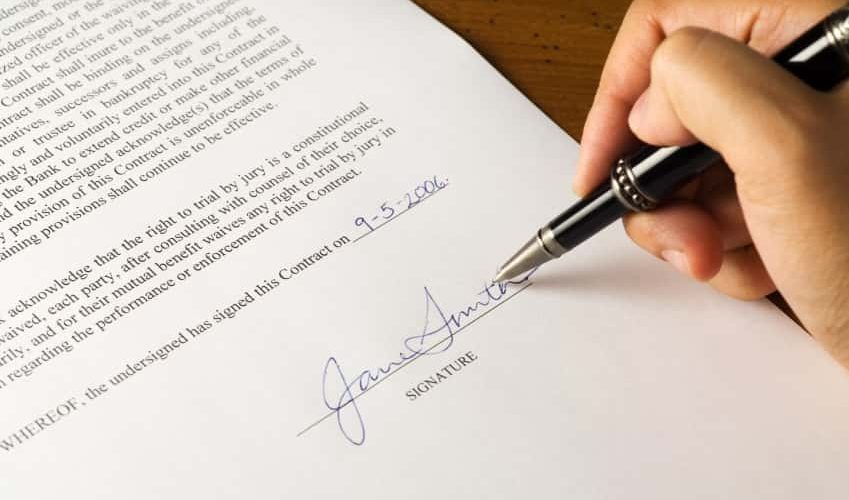 undersigned
consent, mo
undersigned or the
zed officer of the waiving
shall be effective only in the
Contract shall inure to the benefit
tract shall be binding on the undersigned
tatives, successors and assigns including,
or trustee in bankruptcy for any of the
ngly and voluntarily entered into this Contract in
the Bank to extend credit or make other financial
d the undersigned acknowledge(s) that the terms of
y provision of this Contract is unenforceable in whole
aining provisions shall continue to be effective.
acknowledge that the right to trial by jury is a constitutional
waived, each party, after consulting with counsel of their choice,
rily, and for their mutual benefit waives any right to trial by jury in
n regarding the performance or enforcement of this Contract.
WHEREOF, the undersigned has signed this Contract on 9-5-2006.
Jane Smith
SIGNATURE